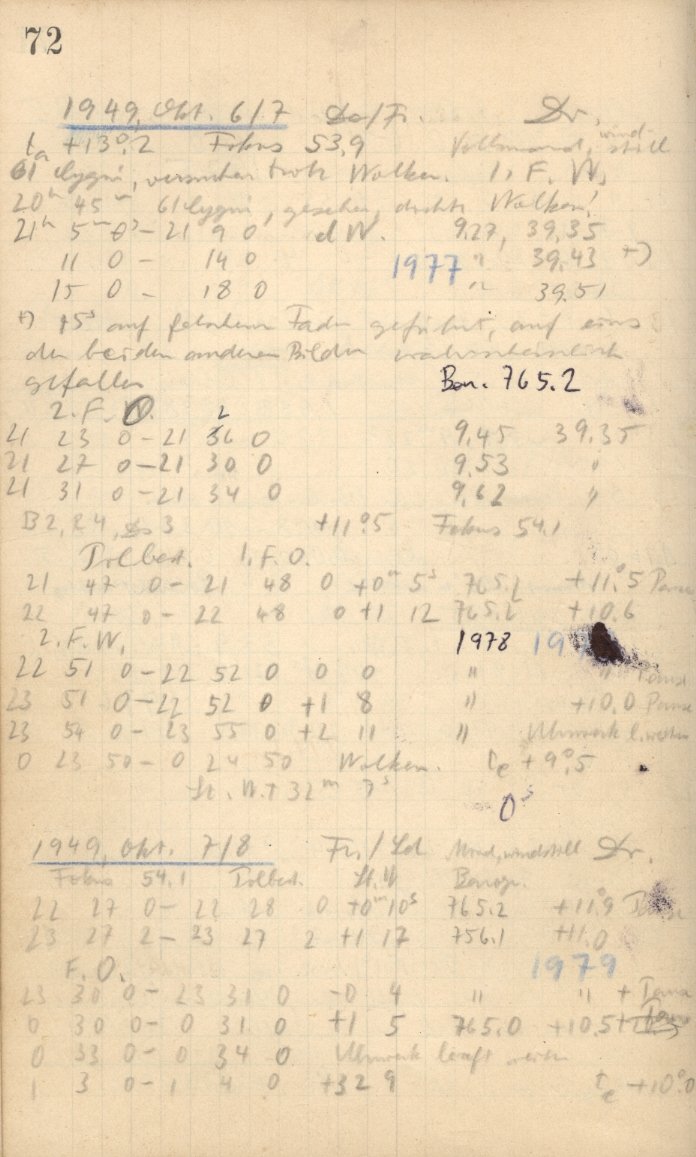 72
1949, Okt. 6/7 Do/Fr. Dr.
ta +13°,2 Fokus 53,9 Vollmond, windstill
61 Cygni, versucht trotz Wolken. 1. F. W.
20h 45m 61 Cygni, gesehen, dichte Wolken!
21h 5m 0s – 21 9 0 d W. 9.27, 39,35
11 0 – 14 0 1977 " 39,43 +)
15 0 – 18 0 " 39.51
+) 15s auf falschem Faden geführt, auf eins
der beiden anderen Bilder wahrscheinlich
gefallen Bar. 765.2
2. F. O.
21 23 0 – 21 26 0 9,45 39,35
21 27 0 – 21 30 0 9,53 "
21 31 0 – 21 34 0 9,62 "
B2, R4, 3 +11°5 Fokus 54.1
Polbest. 1. F. O.
21 47 0 – 21 48 0 +0m 5s 765.2 +11°,5 Pause
22 47 0 – 22 48 0 +1 12 765.2 +10.6
2. F. W. 1978
22 51 0 – 22 52 0 0 0 " " Pause
23 51 0 – 22 52 0 +1 8 " +10,0 Pause
23 54 0 – 23 55 0 +2 11 " Uhrwerk l. weiter
0 23 50 – 0 24 50 Wolken. te +9°,5
St. W. + 32m 7s
0s
1949, Okt. 7/8 Fr./Sd Mond, windstill Dr.
Fokus 54.1 Polbest. St. W Barom.
22 27 0 – 22 28 0 +0m 10s 765.2 +11°9 Pause
23 27 2 – 23 27 2 +1 17 756.1 +11.0
F. O. 1979
23 30 0 – 23 31 0 –0 4 " " + Pause
0 30 0 – 0 31 0 +1 5 765.0 +10.5+ Pause
0 33 0 – 0 34 0 Uhrwerk läuft weiter
1 3 0 – 1 4 0 +32 9 te +10°0